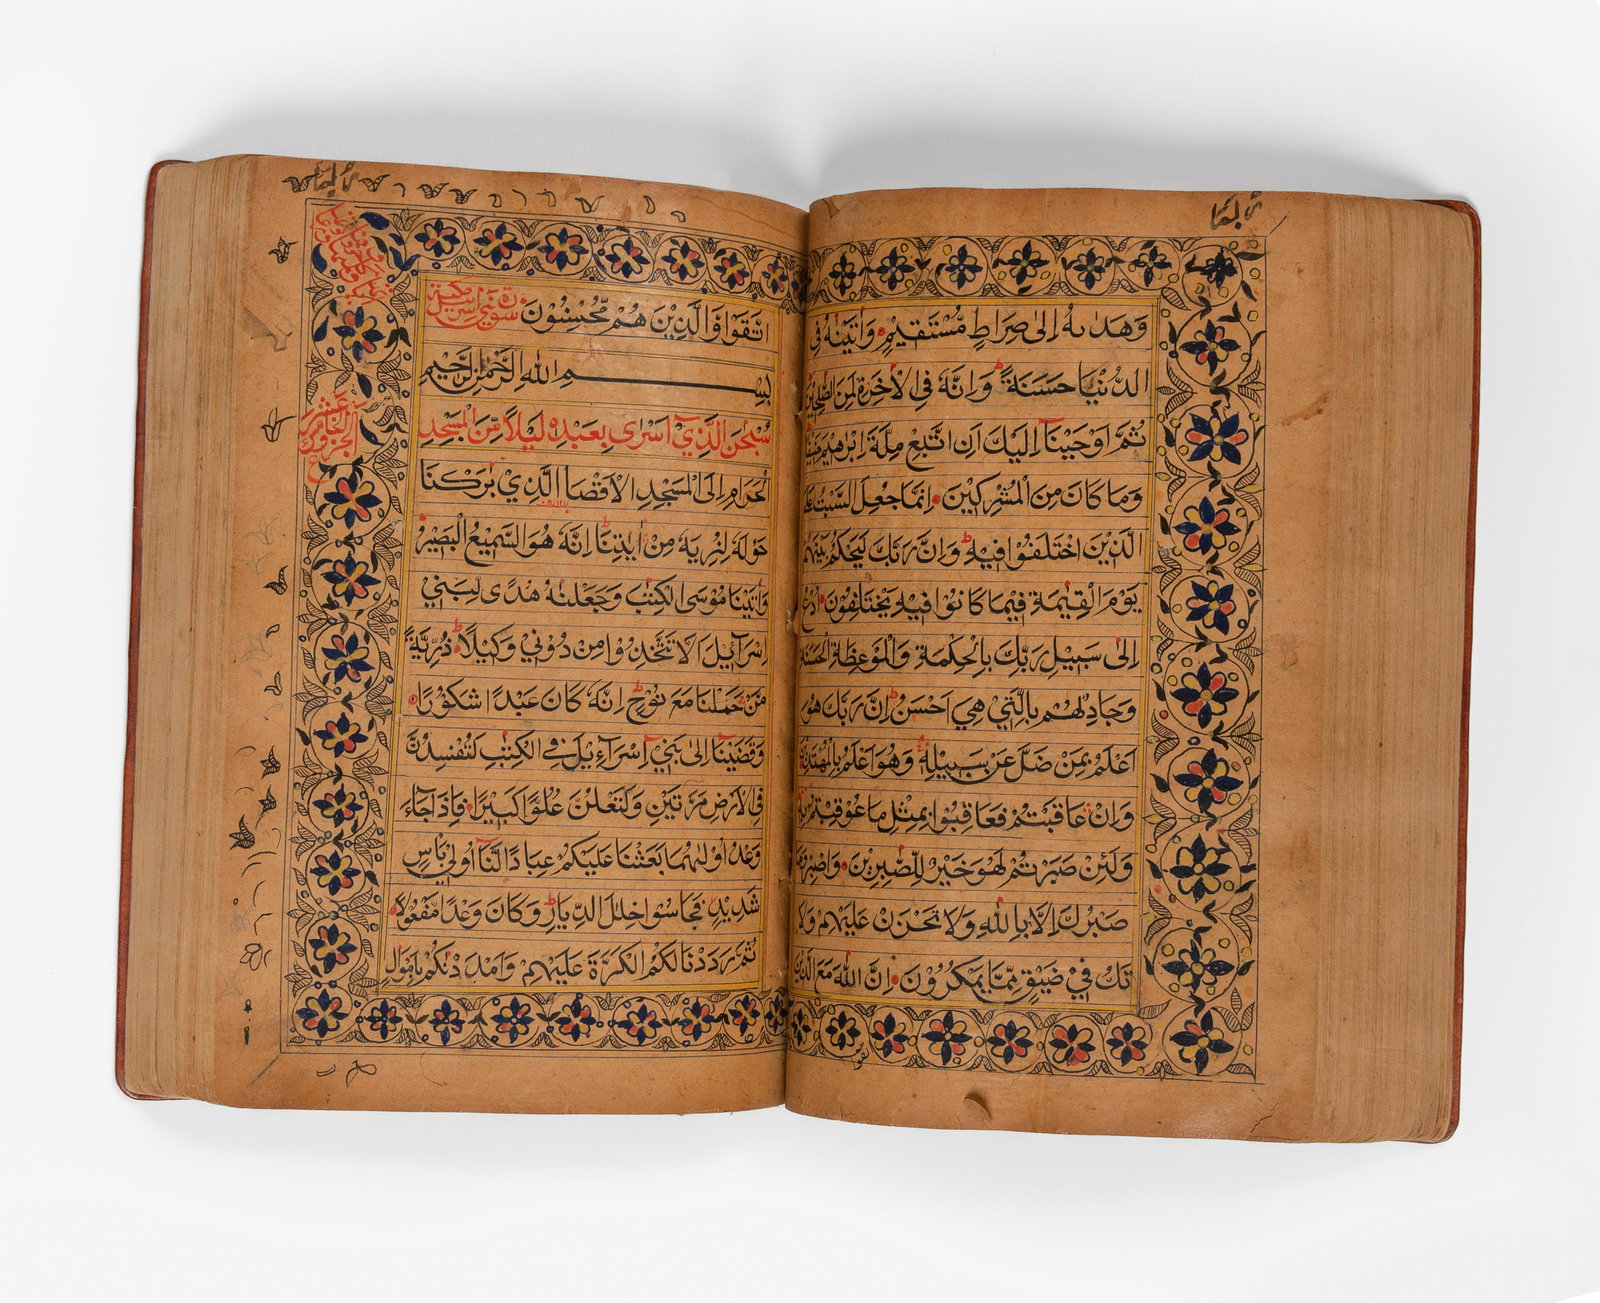 وَهَدٰىهُ اِلٰى صِرَاطٍ مُّسْتَقِيْمٍ وَاٰتَيْنٰهُ فِى
الدُّنْيَا حَسَنَةً وَاِنَّهٗ فِى الْاٰخِرَةِ لَمِنَ الصّٰلِحِيْنَ
ثُمَّ اَوْحَيْنَآ اِلَيْكَ اَنِ اتَّبِعْ مِلَّةَ اِبْرٰهِيْمَ حَنِيْفًا
وَمَا كَانَ مِنَ الْمُشْرِكِيْنَ اِنَّمَا جُعِلَ السَّبْتُ عَلَى
الَّذِيْنَ اخْتَلَفُوْا فِيْهِ وَاِنَّ رَبَّكَ لَيَحْكُمُ بَيْنَهُمْ
يَوْمَ الْقِيٰمَةِ فِيْمَا كَانُوْا فِيْهِ يَخْتَلِفُوْنَ اُدْعُ
اِلٰى سَبِيْلِ رَبِّكَ بِالْحِكْمَةِ وَالْمَوْعِظَةِ الْحَسَنَةِ
وَجَادِلْهُمْ بِالَّتِيْ هِيَ اَحْسَنُ اِنَّ رَبَّكَ هُوَ
اَعْلَمُ بِمَنْ ضَلَّ عَنْ سَبِيْلِهٖ وَهُوَ اَعْلَمُ بِالْمُهْتَدِيْنَ
وَاِنْ عَاقَبْتُمْ فَعَاقِبُوْا بِمِثْلِ مَا عُوْقِبْتُمْ بِهٖ
وَلَئِنْ صَبَرْتُمْ لَهُوَ خَيْرٌ لِّلصّٰبِرِيْنَ وَاصْبِرْ وَمَا
صَبْرُكَ اِلَّا بِاللّٰهِ وَلَا تَحْزَنْ عَلَيْهِمْ وَلَا
تَكُ فِيْ ضَيْقٍ مِّمَّا يَمْكُرُوْنَ اِنَّ اللّٰهَ مَعَ الَّذِيْنَ
اتَّقَوْا وَّالَّذِيْنَ هُمْ مُّحْسِنُوْنَ
بِسْمِ اللّٰهِ الرَّحْمٰنِ الرَّحِيْمِ
سُبْحٰنَ الَّذِيْٓ اَسْرٰى بِعَبْدِهٖ لَيْلًا مِّنَ الْمَسْجِدِ
الْحَرَامِ اِلَى الْمَسْجِدِ الْاَقْصَا الَّذِيْ بٰرَكْنَا
حَوْلَهٗ لِنُرِيَهٗ مِنْ اٰيٰتِنَا اِنَّهٗ هُوَ السَّمِيْعُ الْبَصِيْرُ
وَاٰتَيْنَا مُوْسَى الْكِتٰبَ وَجَعَلْنٰهُ هُدًى لِّبَنِيْٓ
اِسْرَآئِيْلَ اَلَّا تَتَّخِذُوْا مِنْ دُوْنِيْ وَكِيْلًا ذُرِّيَّةَ
مَنْ حَمَلْنَا مَعَ نُوْحٍ اِنَّهٗ كَانَ عَبْدًا شَكُوْرًا
وَقَضَيْنَآ اِلٰى بَنِيْٓ اِسْرَآءِيْلَ فِى الْكِتٰبِ لَتُفْسِدُنَّ
فِى الْاَرْضِ مَرَّتَيْنِ وَلَتَعْلُنَّ عُلُوًّا كَبِيْرًا فَاِذَا جَآءَ
وَعْدُ اُوْلٰىهُمَا بَعَثْنَا عَلَيْكُمْ عِبَادًا لَّنَآ اُولِيْ بَأْسٍ
شَدِيْدٍ فَجَاسُوْا خِلٰلَ الدِّيَارِ وَكَانَ وَعْدًا مَّفْعُوْلًا
ثُمَّ رَدَدْنَا لَكُمُ الْكَرَّةَ عَلَيْهِمْ وَاَمْدَدْنٰكُمْ بِاَمْوَالٍ